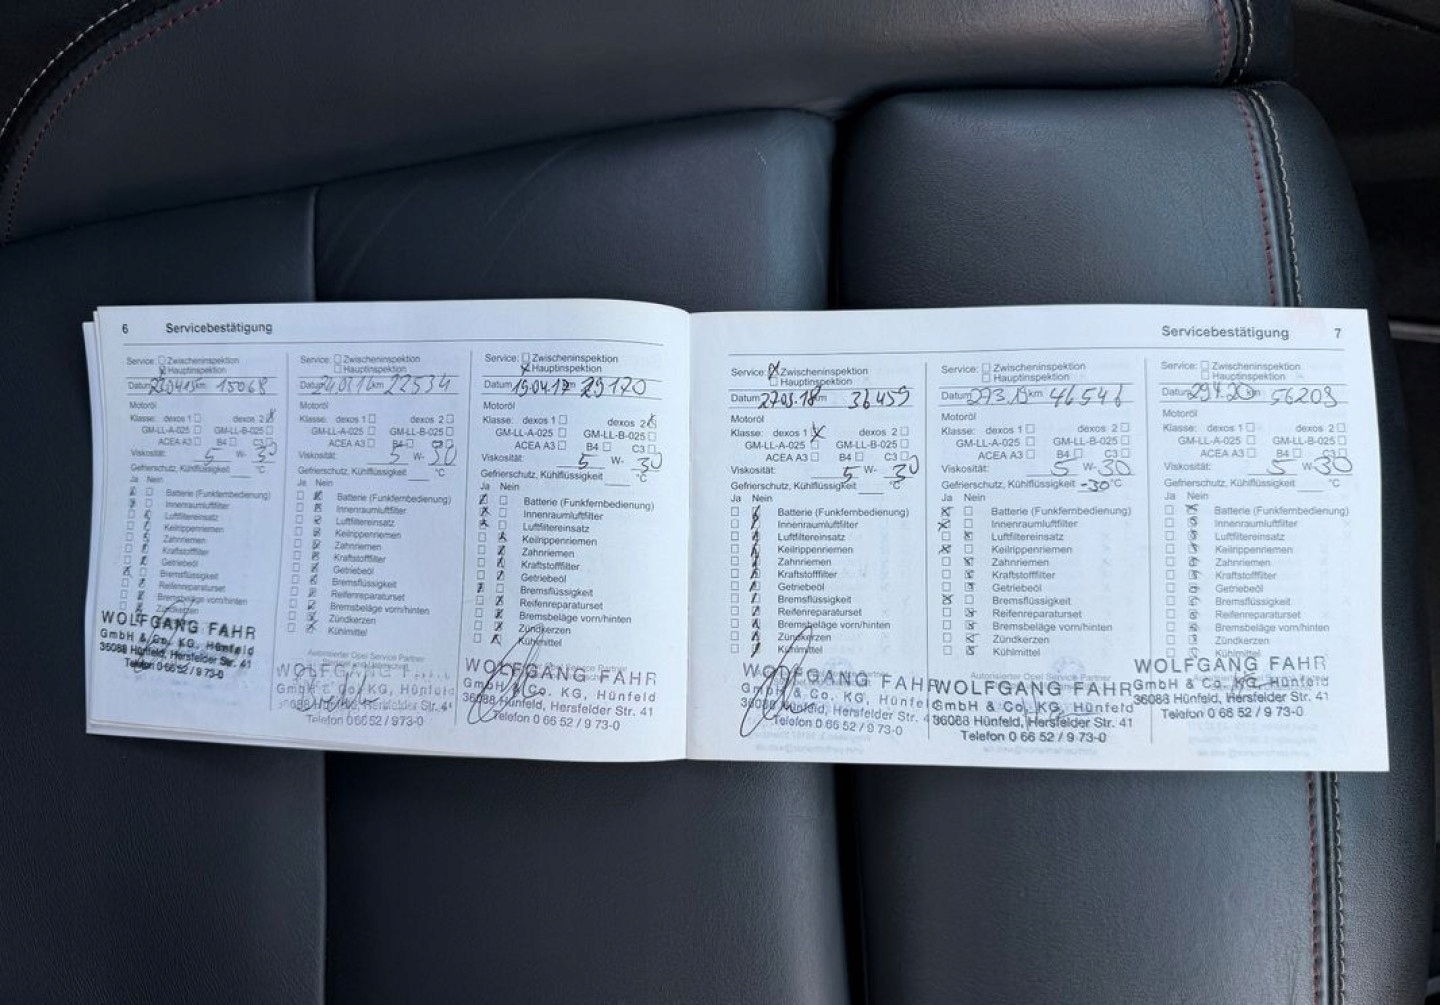 6 Servicebestätigung
Service: Zwischeninspektion
Hauptinspektion
Datum 23.04.15 km 15068
Motoröl
Klasse: dexos 1 dexos 2
GM-LL-A-025 GM-LL-B-025
ACEA A3 B4 C3
Viskosität: 5 W- 30
Gefrierschutz, Kühlflüssigkeit °C
Ja Nein
Batterie (Funkfernbedienung)
Innenraumluftfilter
Luftfiltereinsatz
Keilrippenriemen
Zahnriemen
Kraftstofffilter
Getriebeöl
Bremsflüssigkeit
Reifenreparaturset
Bremsbeläge vorn/hinten
Zündkerzen
WOLFGANG FAHR
GmbH & Co. KG, Hünfeld
36088 Hünfeld, Hersfelder Str. 41
Telefon 0 66 52 / 9 73-0
Service: Zwischeninspektion
Hauptinspektion
Datum km 22534
Motoröl
Klasse: dexos 1 dexos 2
GM-LL-A-025 GM-LL-B-025
ACEA A3 B4 C3
Viskosität: 5 W- 30
Gefrierschutz, Kühlflüssigkeit °C
Ja Nein
Batterie (Funkfernbedienung)
Innenraumluftfilter
Luftfiltereinsatz
Keilrippenriemen
Zahnriemen
Kraftstofffilter
Getriebeöl
Bremsflüssigkeit
Reifenreparaturset
Bremsbeläge vorn/hinten
Zündkerzen
Kühlmittel
Autorisierter Opel Service Partner
WOLFGANG
GmbH & Co. KG, Hünfeld
36088 Hünfeld, Hersfelder Str. 41
Telefon 0 66 52 / 9 73-0
Service: Zwischeninspektion
Hauptinspektion
Datum 19.04.17 km 29170
Motoröl
Klasse: dexos 1 dexos 2
GM-LL-A-025 GM-LL-B-025
ACEA A3 B4 C3
Viskosität: 5 W- 30
Gefrierschutz, Kühlflüssigkeit °C
Ja Nein
Batterie (Funkfernbedienung)
Innenraumluftfilter
Luftfiltereinsatz
Keilrippenriemen
Zahnriemen
Kraftstofffilter
Getriebeöl
Bremsflüssigkeit
Reifenreparaturset
Bremsbeläge vorn/hinten
Zündkerzen
Kühlmittel
WOLFGANG FAHR
GmbH & Co. KG, Hünfeld
36088 Hünfeld, Hersfelder Str. 41
Telefon 0 66 52 / 9 73-0
Servicebestätigung 7
Service: Zwischeninspektion
Hauptinspektion
Datum 27.03.18 km 36459
Motoröl
Klasse: dexos 1 dexos 2
GM-LL-A-025 GM-LL-B-025
ACEA A3 B4 C3
Viskosität: 5 W- 30
Gefrierschutz, Kühlflüssigkeit °C
Ja Nein
Batterie (Funkfernbedienung)
Innenraumluftfilter
Luftfiltereinsatz
Keilrippenriemen
Zahnriemen
Kraftstofffilter
Getriebeöl
Bremsflüssigkeit
Reifenreparaturset
Bremsbeläge vorn/hinten
Zündkerzen
Kühlmittel
WOLFGANG FAHR
GmbH & Co. KG, Hünfeld
36088 Hünfeld, Hersfelder Str. 4
Telefon 0 66 52 / 9 73-0
Service: Zwischeninspektion
Hauptinspektion
Datum 27.3.19 km 46546
Motoröl
Klasse: dexos 1 dexos 2
GM-LL-A-025 GM-LL-B-025
ACEA A3 B4 C3
Viskosität: 5 W- 30
Gefrierschutz, Kühlflüssigkeit -30 °C
Ja Nein
Batterie (Funkfernbedienung)
Innenraumluftfilter
Luftfiltereinsatz
Keilrippenriemen
Zahnriemen
Kraftstofffilter
Getriebeöl
Bremsflüssigkeit
Reifenreparaturset
Bremsbeläge vorn/hinten
Zündkerzen
Kühlmittel
WOLFGANG FAHR
GmbH & Co. KG, Hünfeld
36088 Hünfeld, Hersfelder Str. 41
Telefon 0 66 52 / 9 73-0
Service: Zwischeninspektion
Hauptinspektion
Datum 29.4.20 km 56203
Motoröl
Klasse: dexos 1 dexos 2
GM-LL-A-025 GM-LL-B-025
ACEA A3 B4 C3
Viskosität: 5 W- 30
Gefrierschutz, Kühlflüssigkeit °C
Ja Nein
Batterie (Funkfernbedienung)
Innenraumluftfilter
Luftfiltereinsatz
Keilrippenriemen
Zahnriemen
Kraftstofffilter
Getriebeöl
Bremsflüssigkeit
Reifenreparaturset
Bremsbeläge vorn/hinten
Zündkerzen
Kühlmittel
WOLFGANG FAHR
GmbH & Co. KG, Hünfeld
36088 Hünfeld, Hersfelder Str. 41
Telefon 0 66 52 / 9 73-0